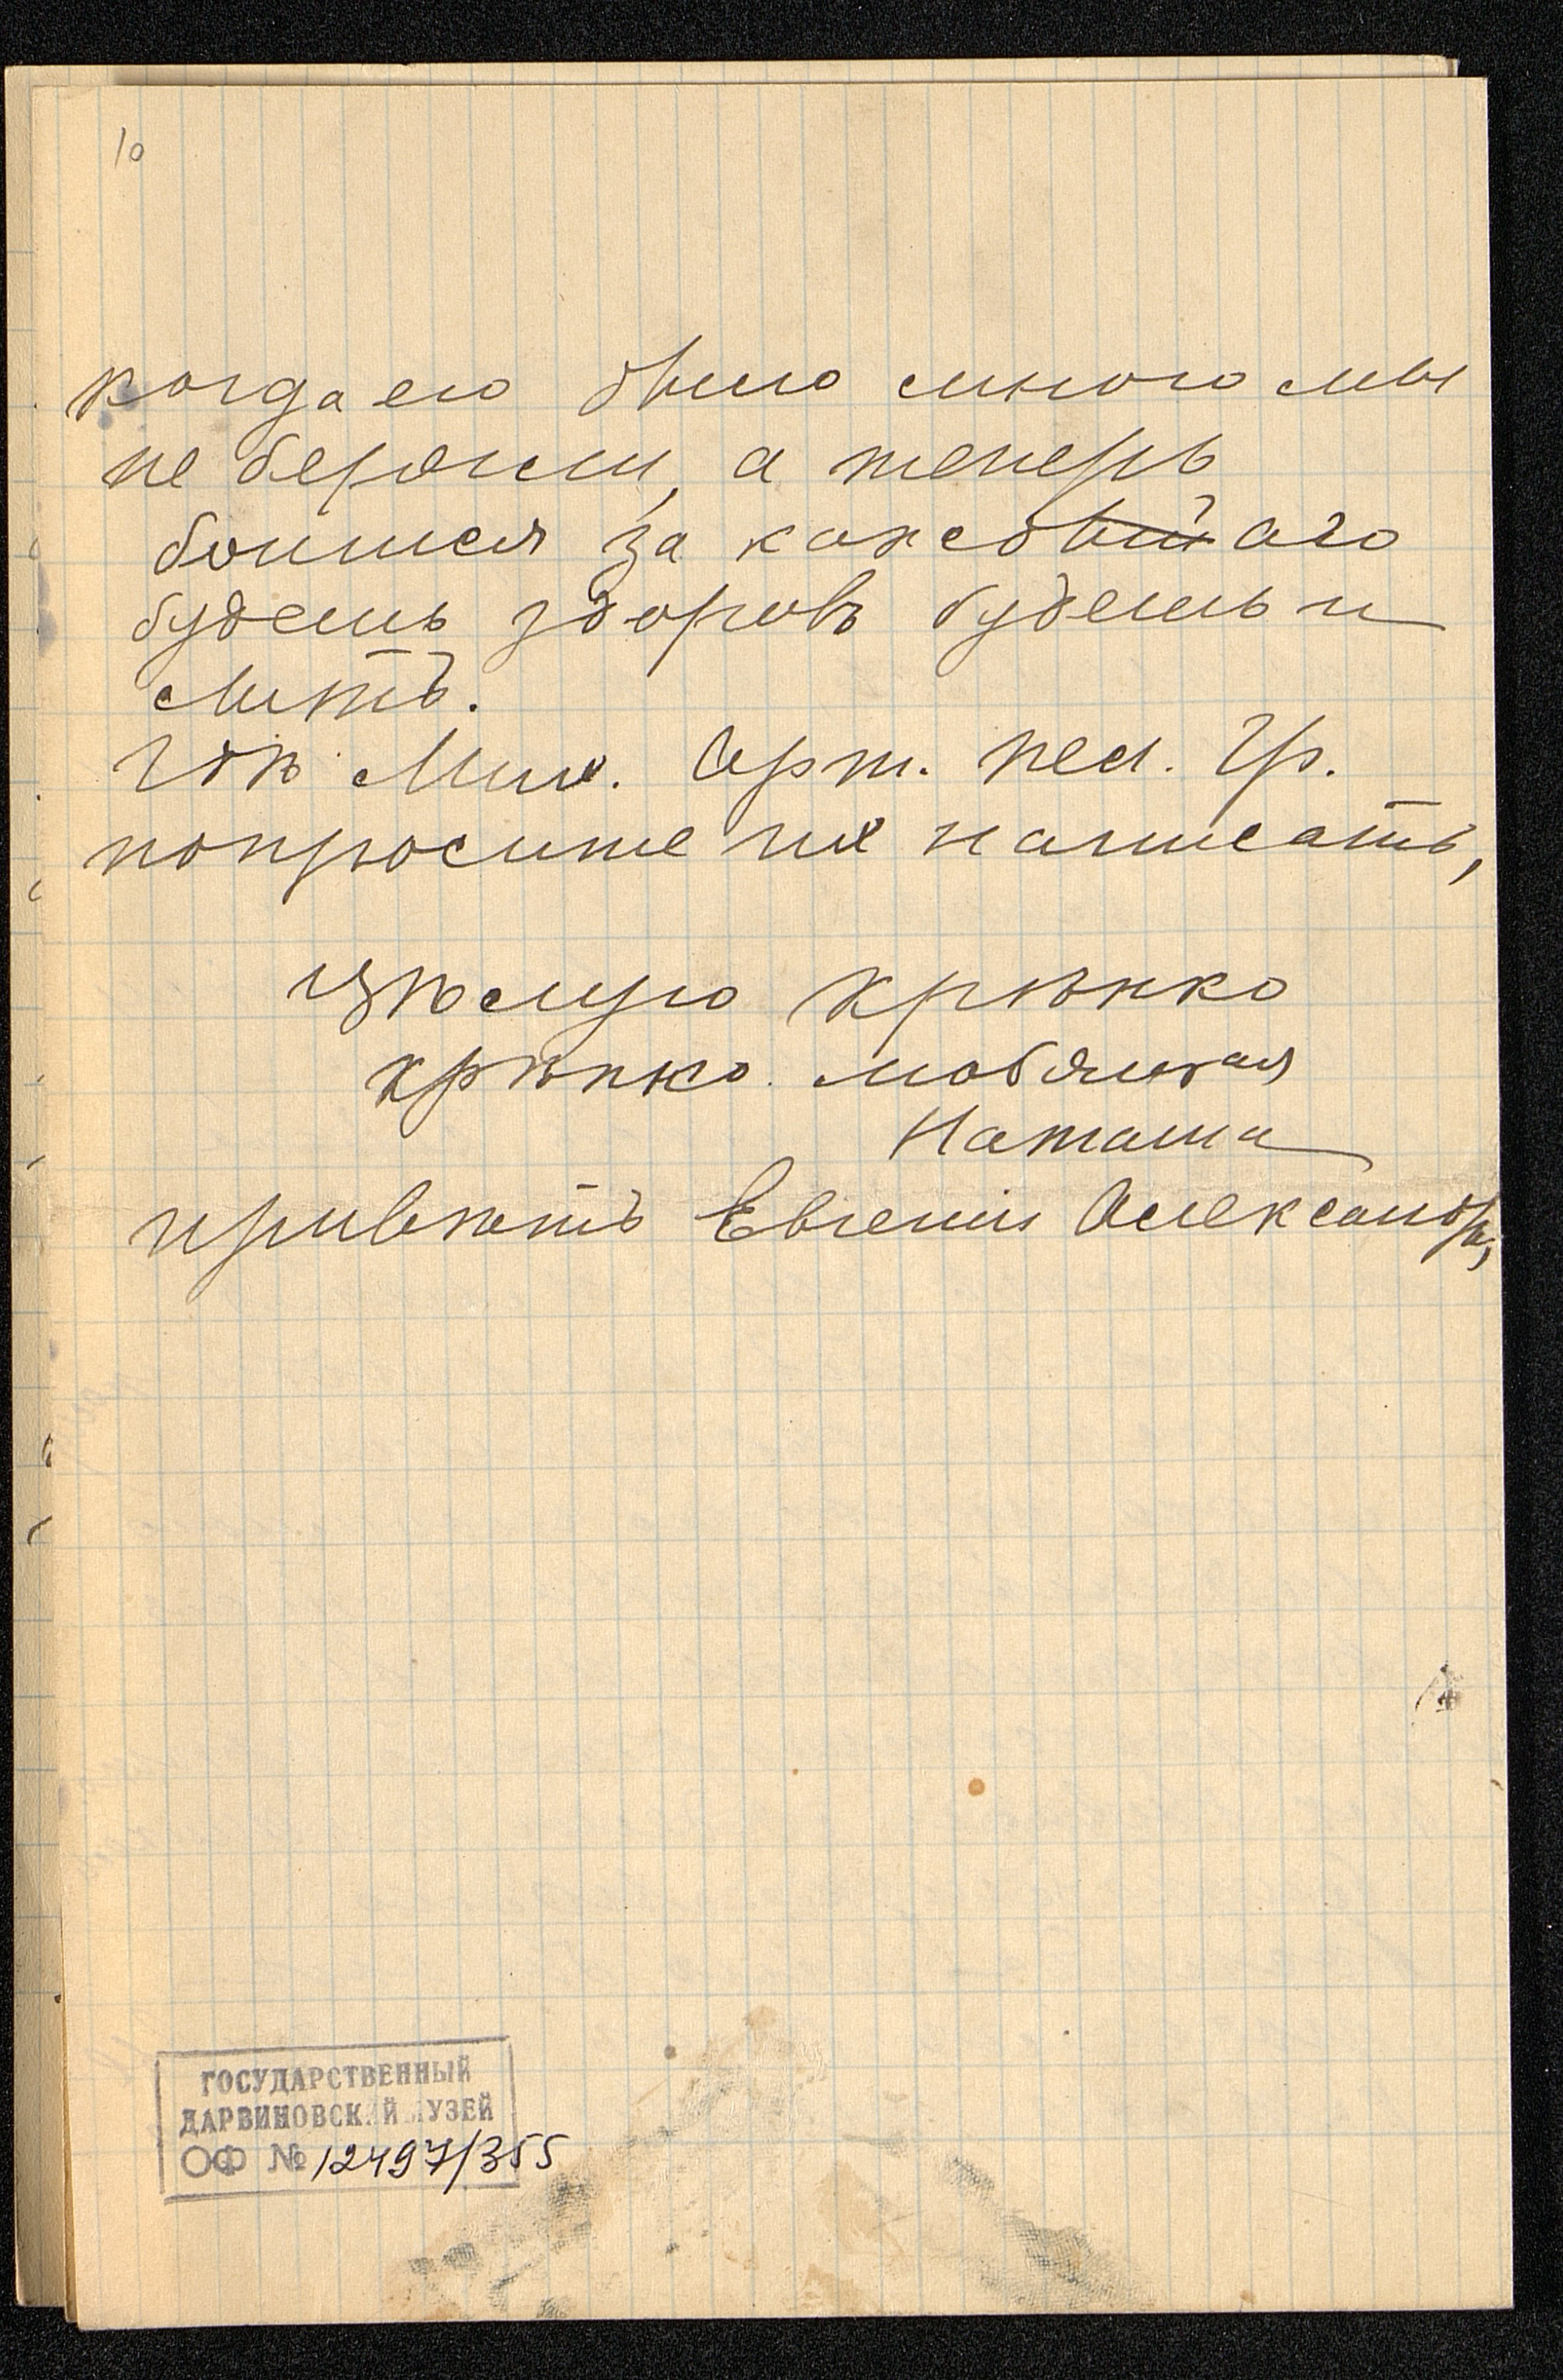 10
когда его было много мы
не берегли, а теперь
боимся за каждый аго
будешь здоровъ будешь и
сытъ.
Гдѣ Мих. Арт. Гр.
попросите их написать,
Цѣлую крѣпко
крѣпко. любящая
Наташа
привѣтъ Евгеніи Александр.,
ГОСУДАРСТВЕННЫЙ
ДАРВИНОВСКИЙ МУЗЕЙ
ОФ № 12497/355